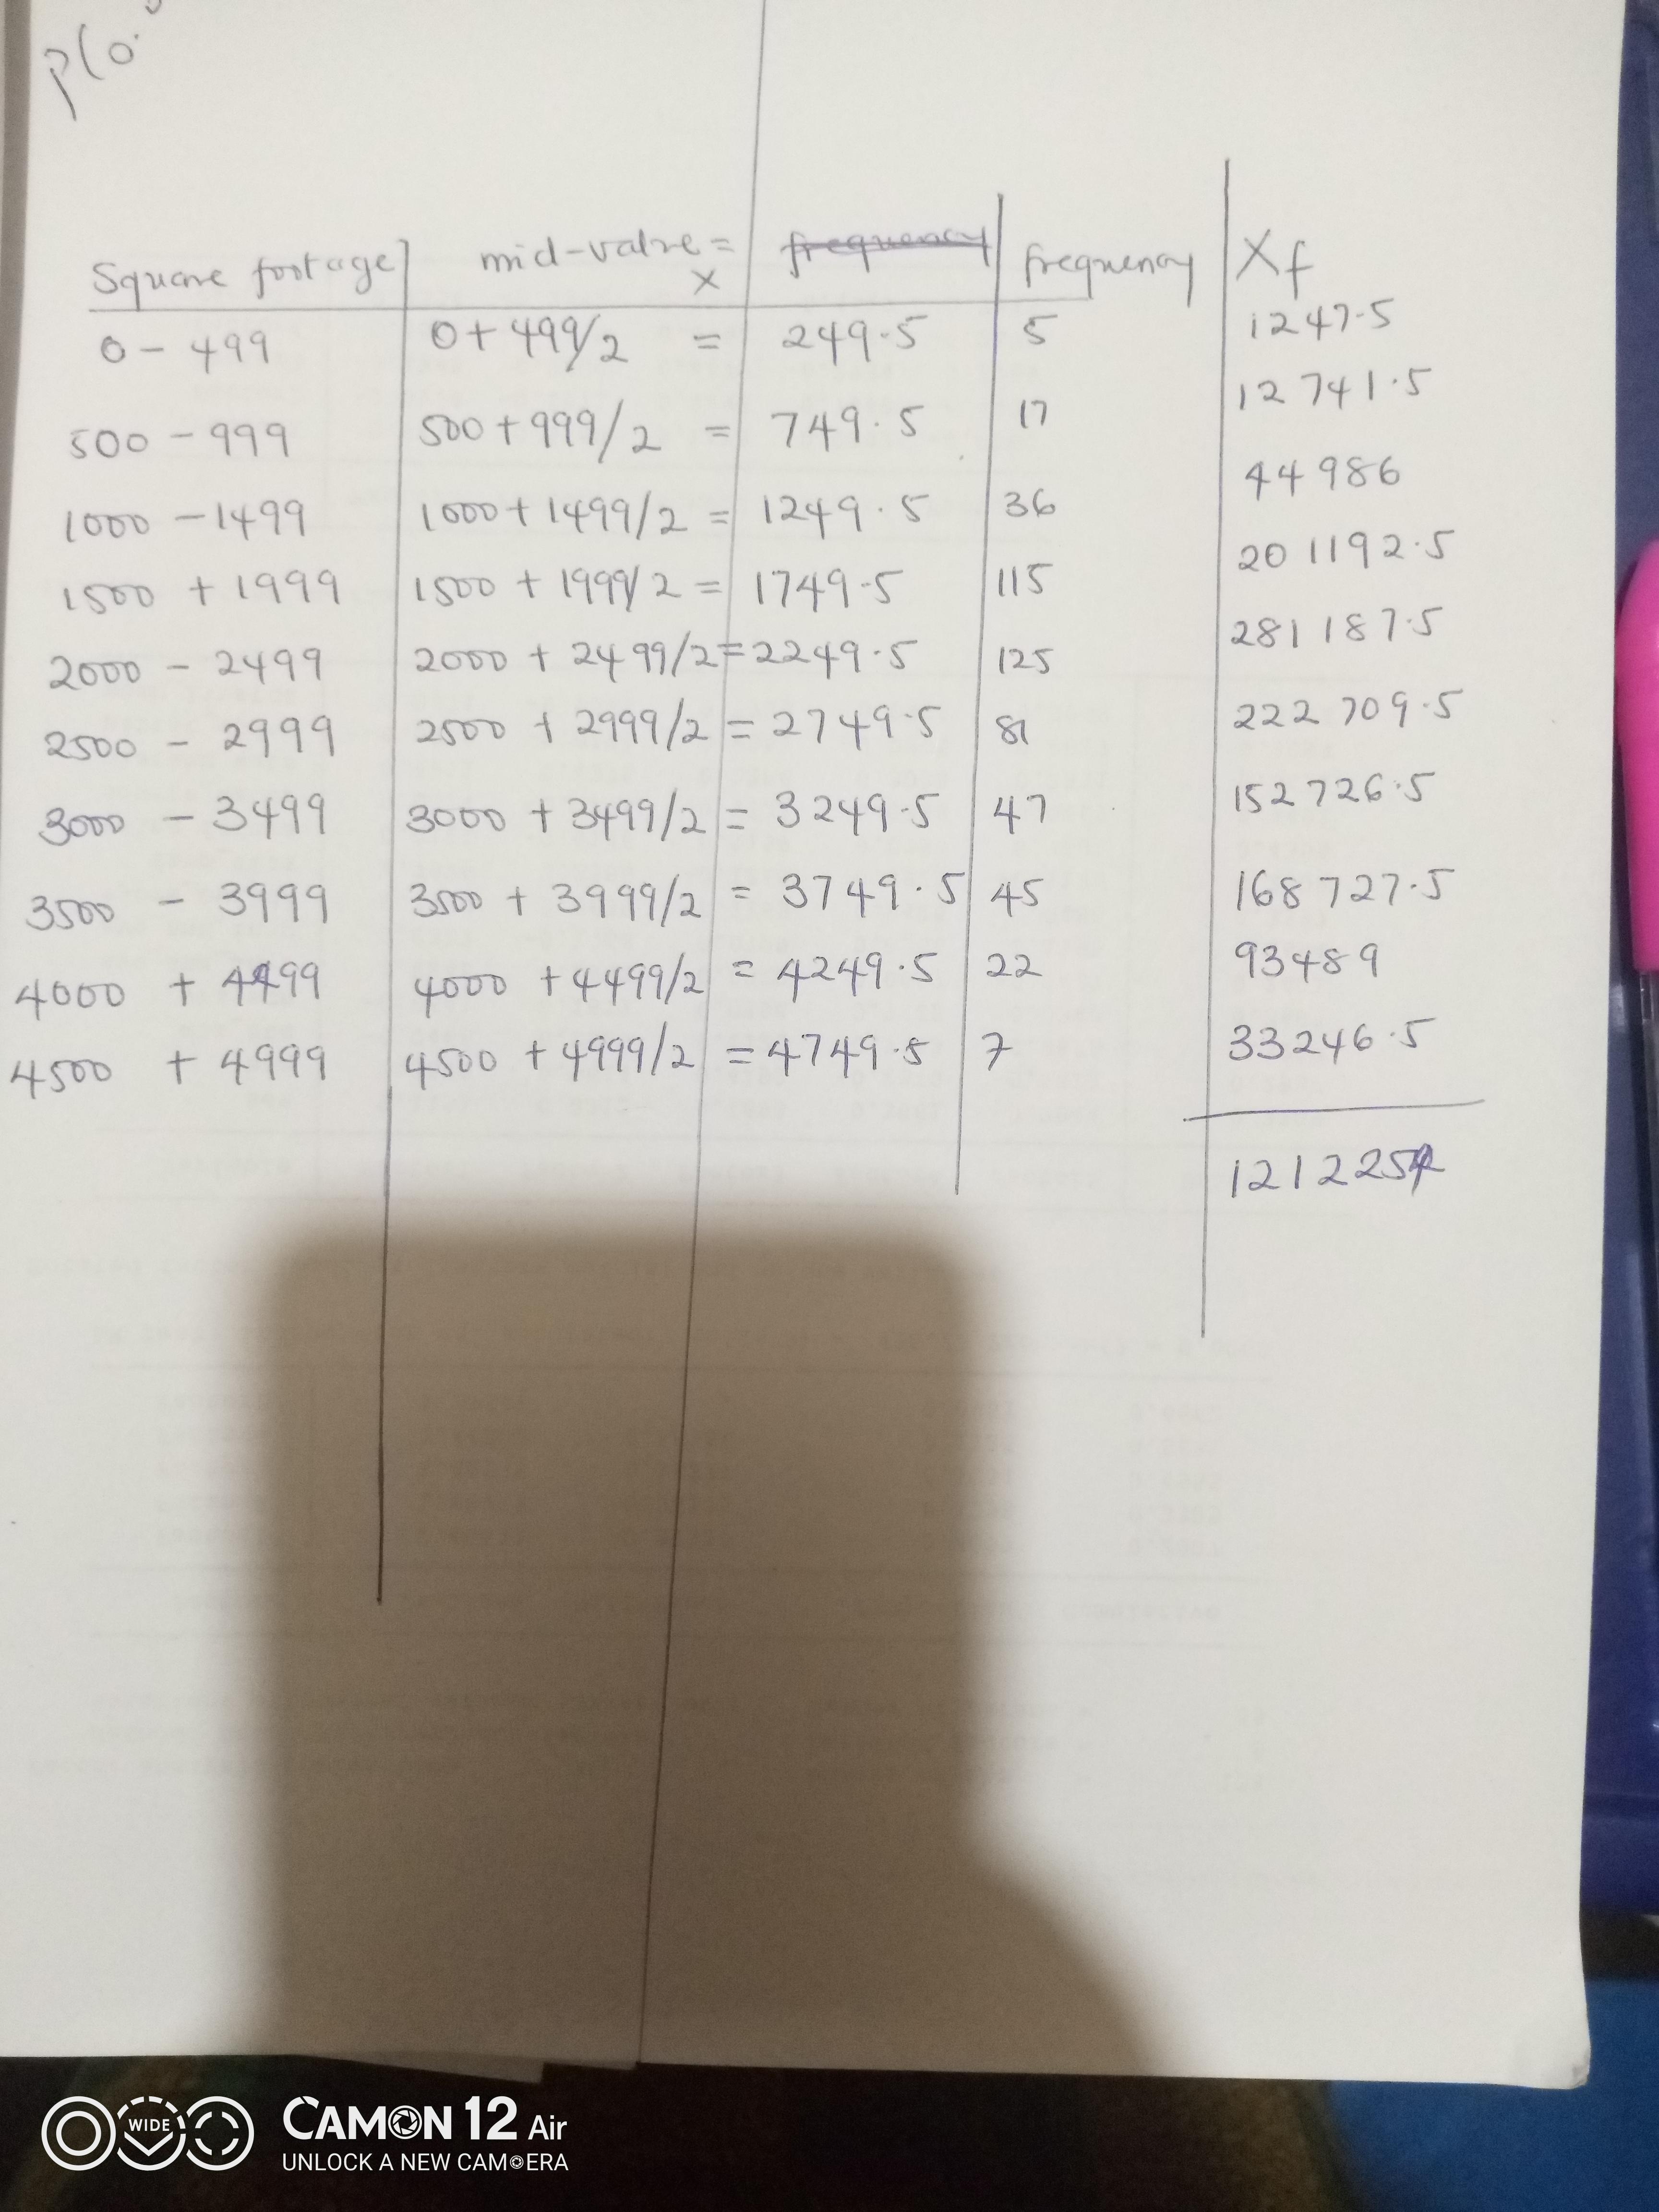 P(0.
Square footage mid-value = x frequency frequency Xf
0 - 499 0 + 499/2 = 249.5 5 1247.5
500 - 999 500 + 999/2 = 749.5 17 12741.5
1000 - 1499 1000 + 1499/2 = 1249.5 36 44986
1500 + 1999 1500 + 1999/2 = 1749.5 115 201192.5
2000 - 2499 2000 + 2499/2 = 2249.5 125 281187.5
2500 - 2999 2500 + 2999/2 = 2749.5 81 222709.5
3000 - 3499 3000 + 3499/2 = 3249.5 47 152726.5
3500 - 3999 3500 + 3999/2 = 3749.5 45 168727.5
4000 + 4499 4000 + 4499/2 = 4249.5 22 93489
4500 + 4999 4500 + 4999/2 = 4749.5 7 33246.5
WIDE
CAMON 12 Air
UNLOCK A NEW CAMERA